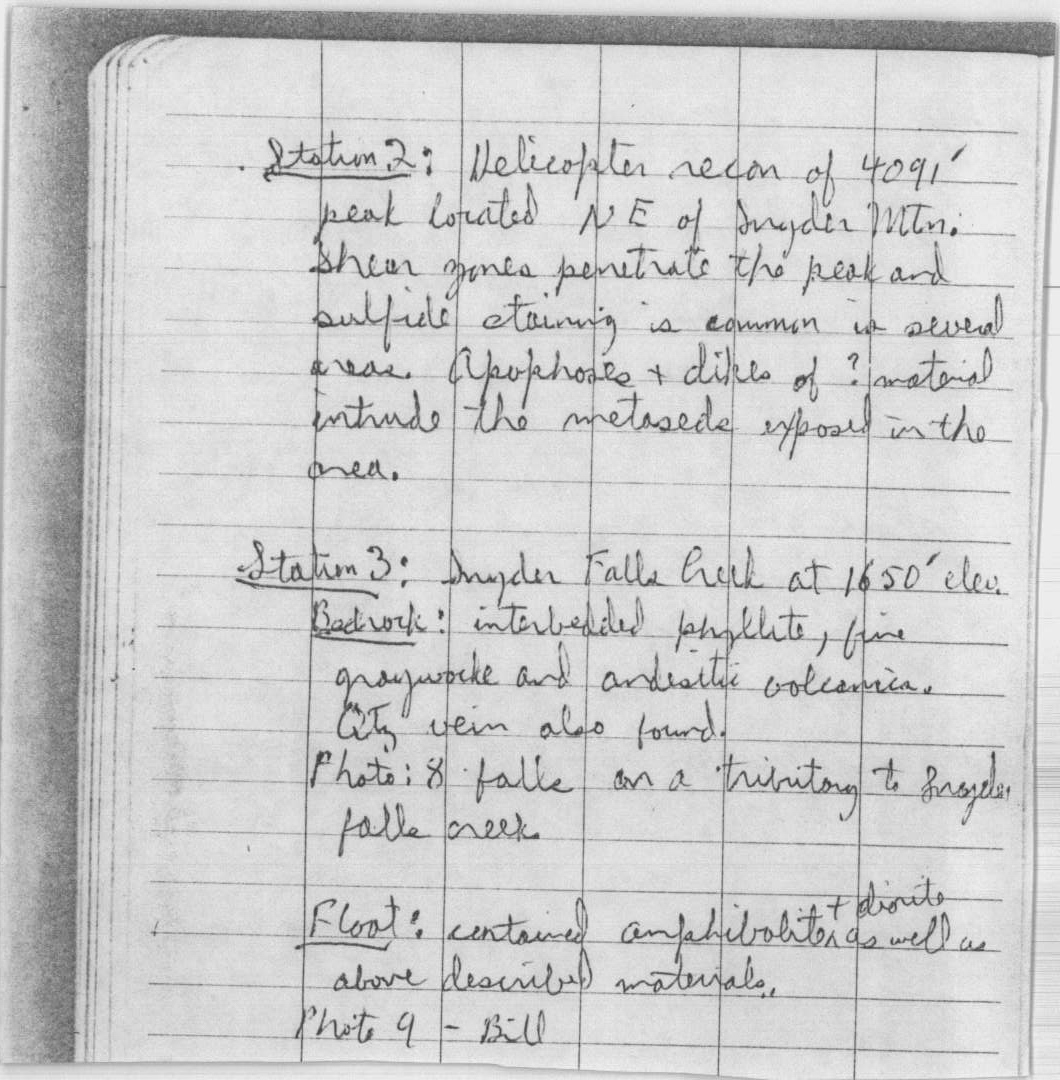 Station 2: Helicopter recon of 4091'
peak located NE of Snyder Mtn.
Shear zones penetrate the peak and
sulfide staining is common in several
areas. Apophoses + dikes of ? material
intrude the metaseds exposed in the
area.
Station 3: Snyder Falls Creek at 1650' elev.
Bedrock: interbedded phyllite, fine
graywacke and andesitic volcanics.
Qtz vein also found.
Photo: 8 falls on a tributary to Snyder
falls creek
Float: contained amphibolite + diorite as well as
above described materials.
Photo 9 - Bill